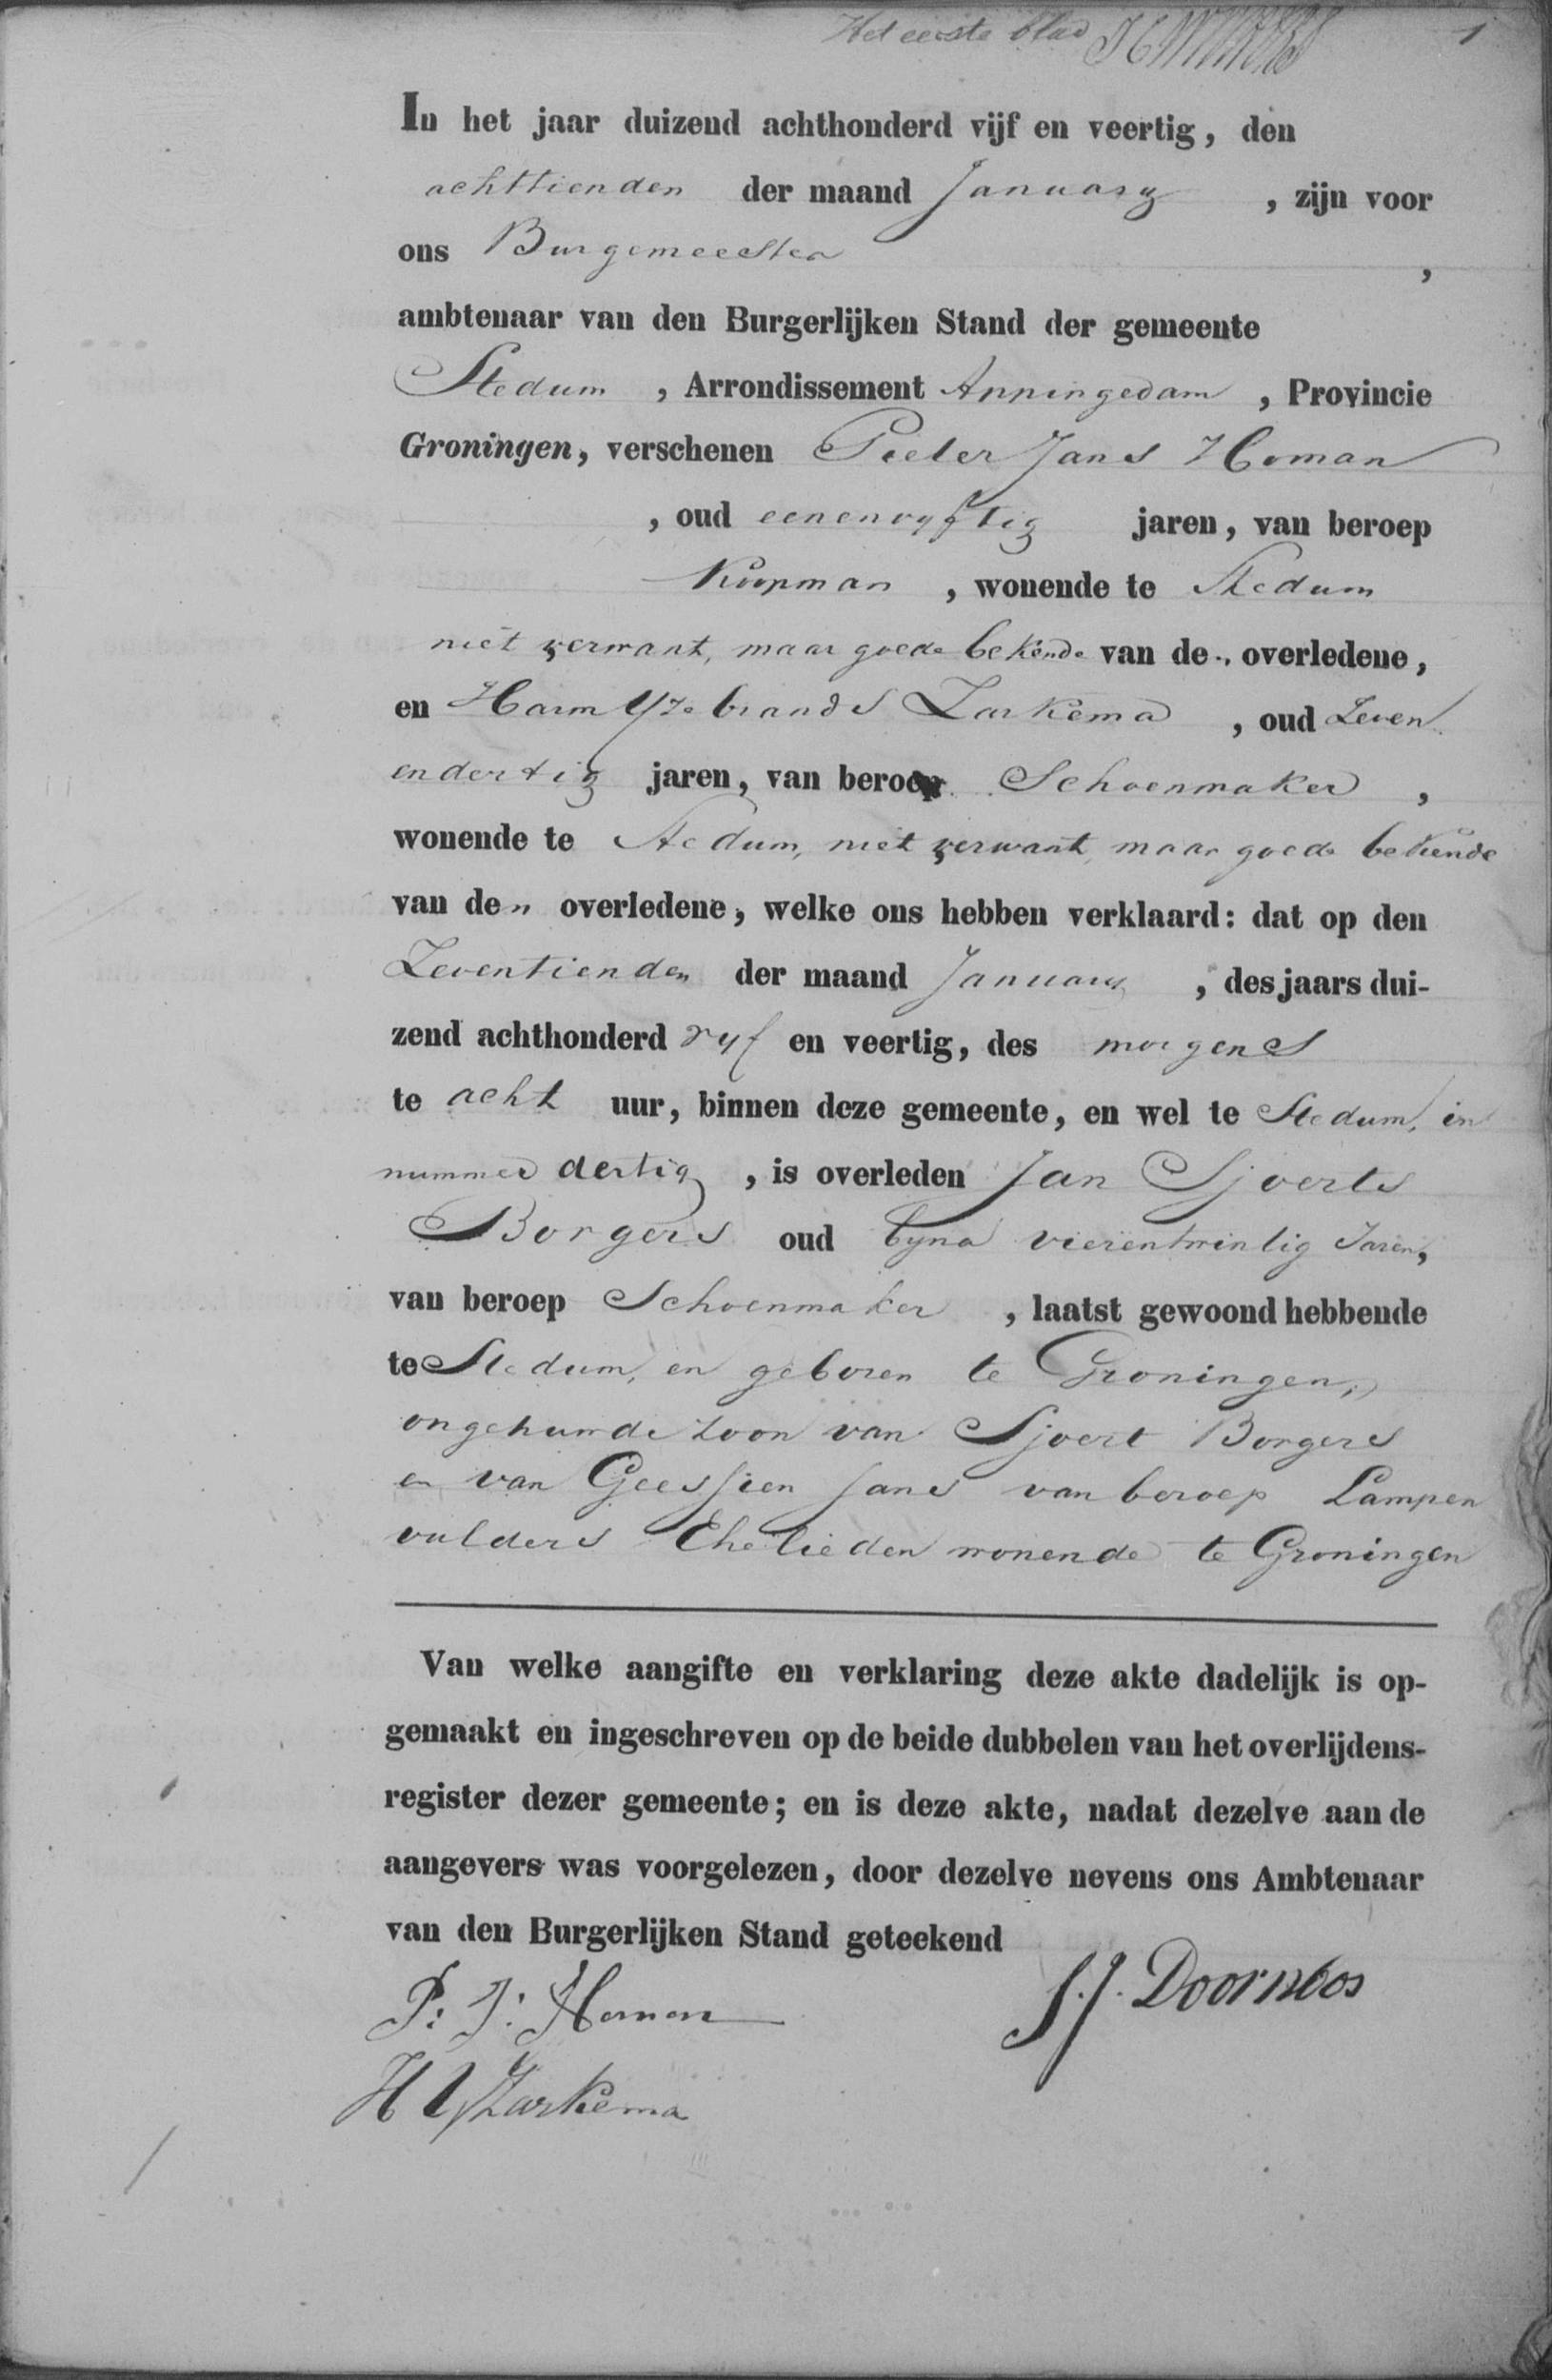 Het eerste blad 1
In het jaar duizend achthonderd vijf en veertig, den
achttienden der maand January , zijn voor
ons Burgemeester ,
ambtenaar van den Burgerlijken Stand der gemeente
Stedum , Arrondissement Appingedam , Provincie
Groningen, verschenen Pieter Jans Homan
, oud eenenvyftig jaren, van beroep
Koopman , wonende te Stedum
niet verwant, maar goede bekende van de.. overledene,
en Harm Yzebrands Zarkema , oud Zeven
endertig jaren, van beroep Schoenmaker ,
wonende te Stedum, niet verwant, maar goede bekende
van de,, overledene, welke ons hebben verklaard: dat op den
Zeventienden der maand January , des jaars dui-
zend achthonderd vyf en veertig, des morgens
te acht uur, binnen deze gemeente, en wel te Stedum, in
nummer dertig , is overleden Jan Sjoerts
Borgers oud byna vierentwintig Jaren,
van beroep Schoenmaker , laatst gewoond hebbende
te Stedum, en geboren te Groningen,
ongehuwde zoon van Sjoert Borgers
en van Geessien Jans van beroep Lampen
vulders Ehelieden wonende te Groningen
Van welke aangifte en verklaring deze akte dadelijk is op-
gemaakt en ingeschreven op de beide dubbelen van het overlijdens-
register dezer gemeente; en is deze akte, nadat dezelve aan de
aangevers was voorgelezen, door dezelve nevens ons Ambtenaar
van den Burgerlijken Stand geteekend
P: J: Homan
J. J. Doornbos
H Y Zarkema